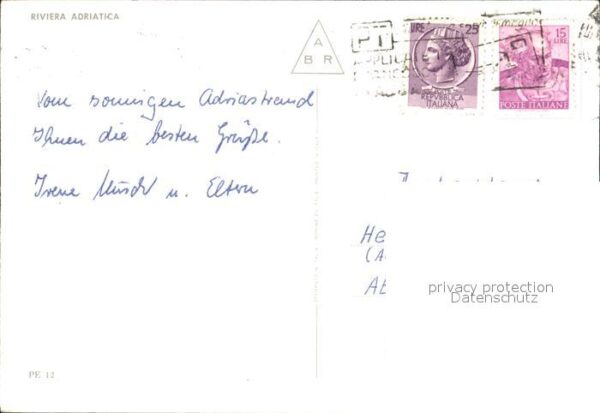 RIVIERA ADRIATICA
A
B R
PT
LIRE 25
15
LIRE
REPVBBLICA
ITALIANA
POSTE ITALIANE
Vom sonnigen Adriastrand
Ihnen die besten Grüße.
Irene u. Eltern
He
(A
privacy protection
Datenschutz
PE 12